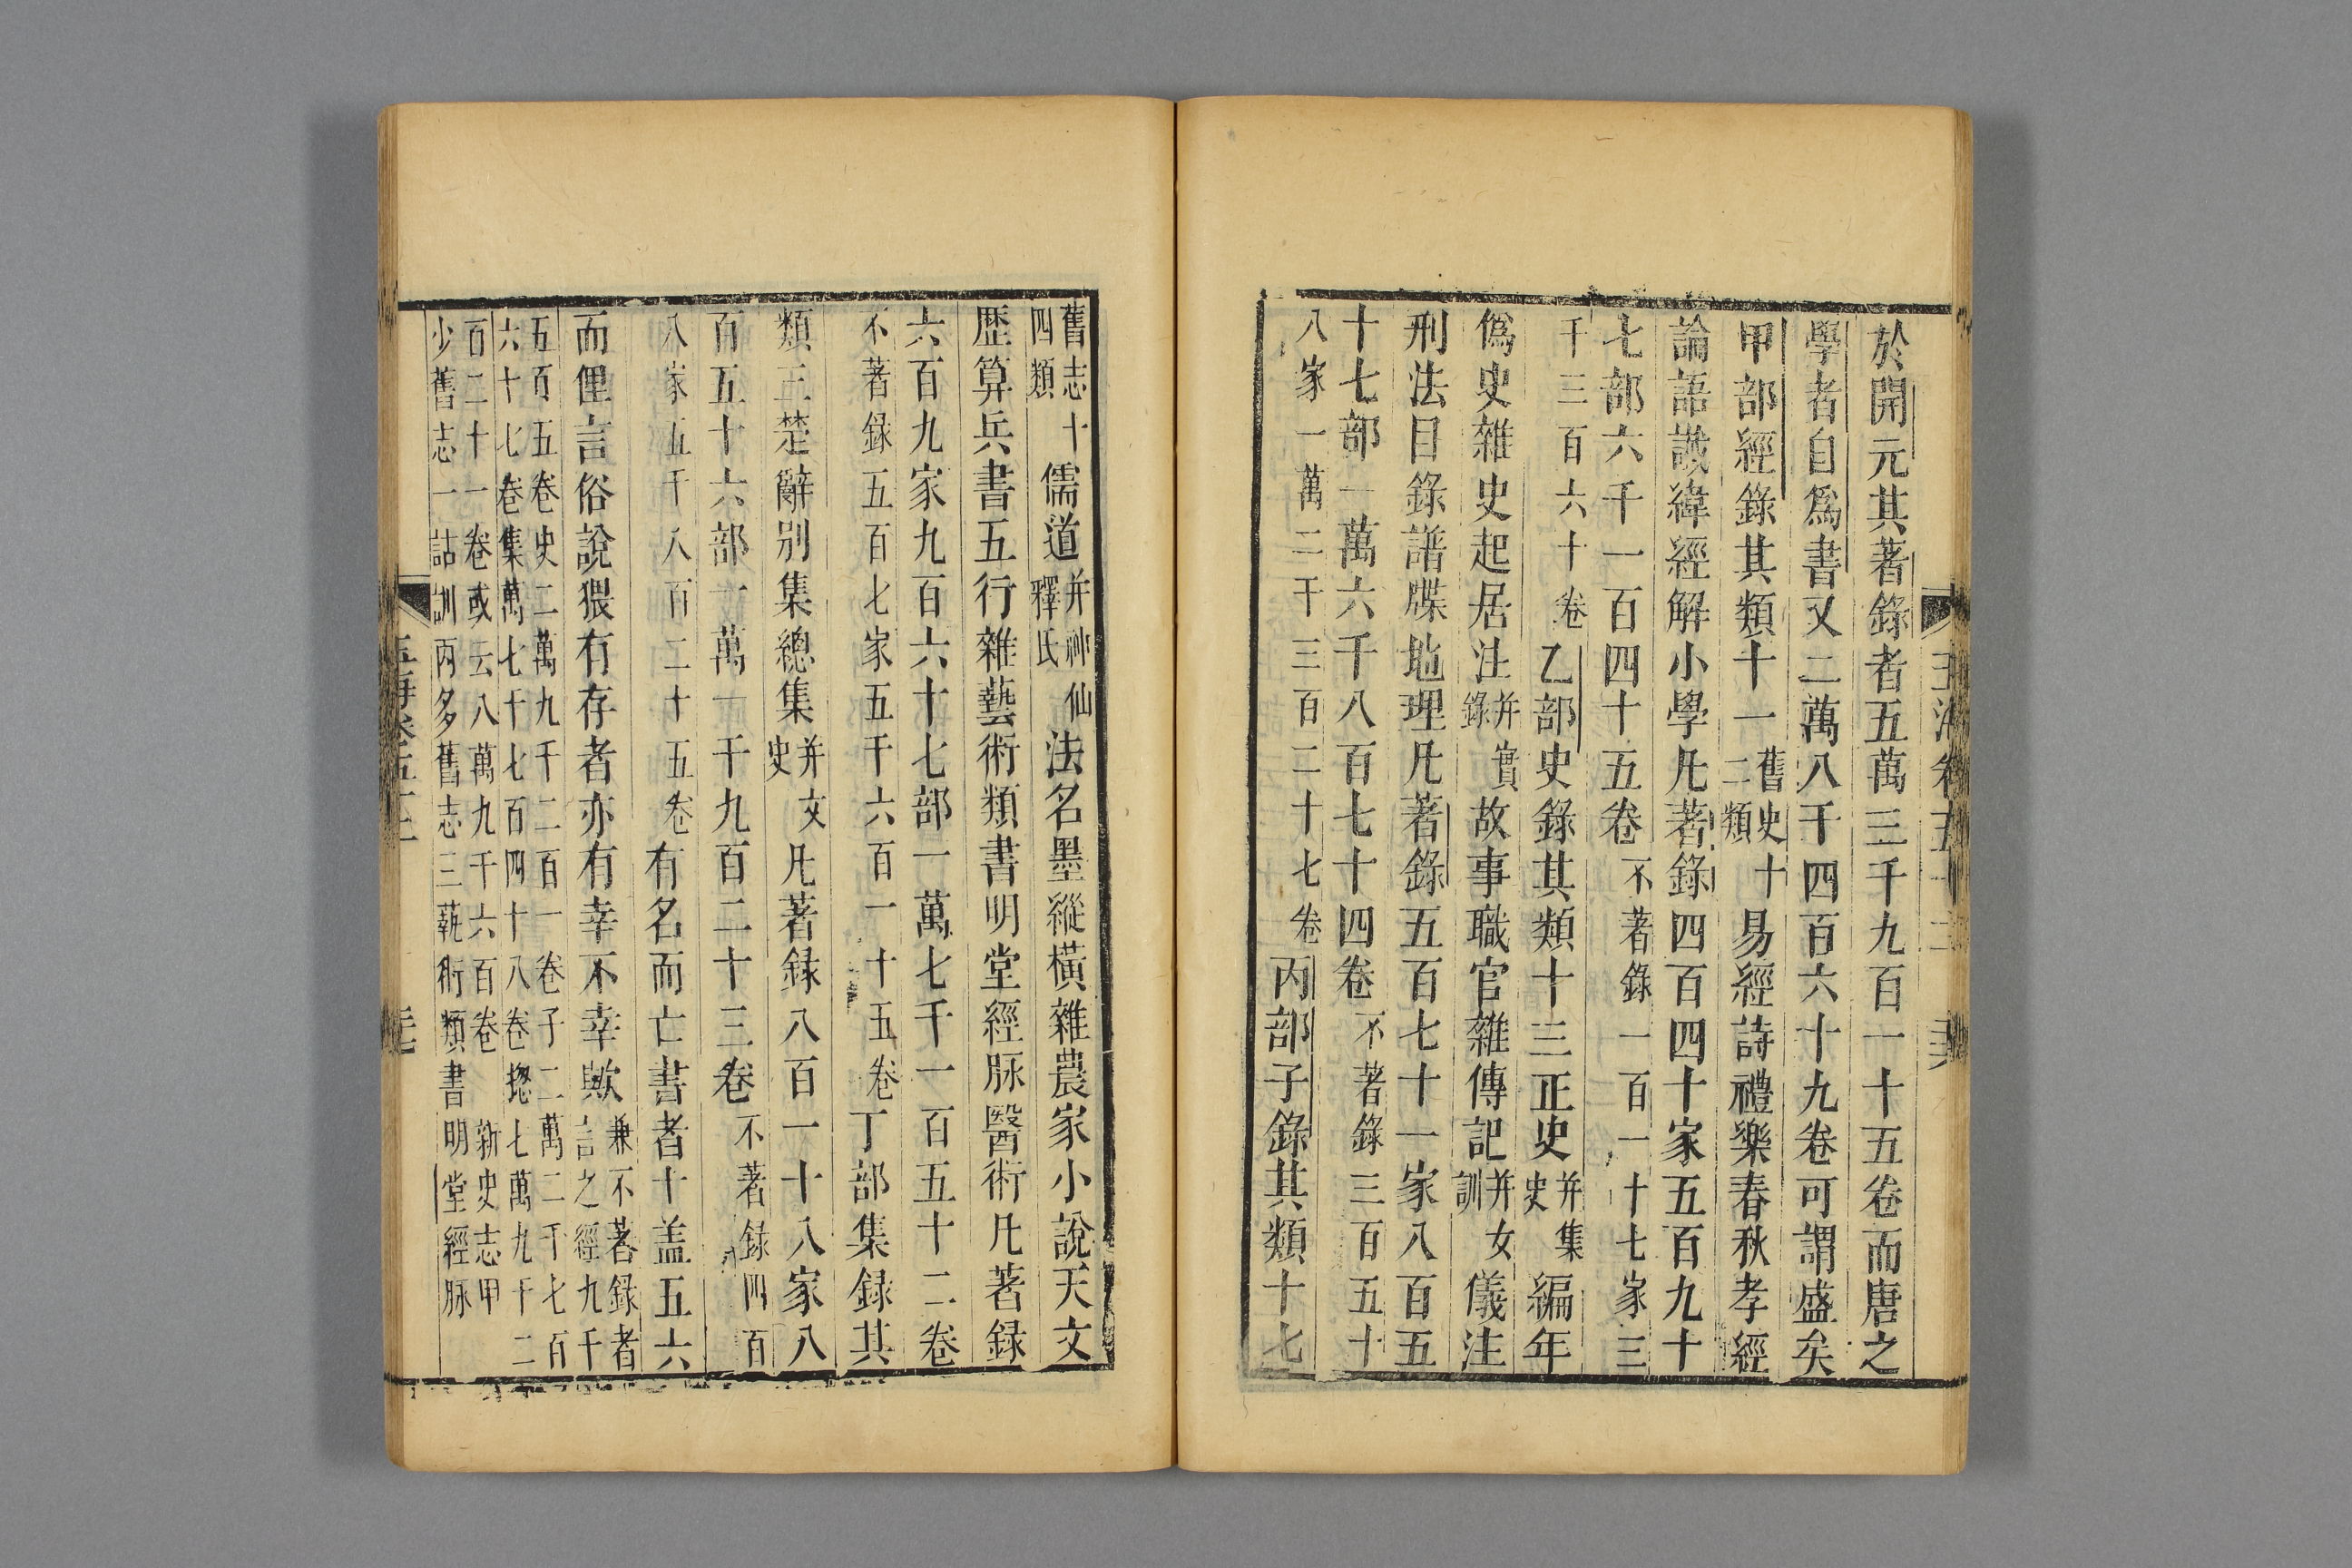 於開元其著錄者五萬三千九百一十五卷而唐之
學者自爲書又二萬八千四百六十九卷可謂盛矣
甲部經錄其類十一舊史十二類易經詩禮樂春秋孝經
論語讖緯經解小學凡著錄四百四十家五百九十
七部六千一百四十五卷不著錄一百一十七家三
千三百六十卷乙部史錄其類十三正史并集史編年
僞史雜史起居注并實錄故事職官雜傳記并女訓儀注
刑法目錄譜牒地理凡著錄五百七十一家八百五
十七部一萬六千八百七十四卷不著錄三百五十
八家一萬二千三百二十七卷丙部子錄其類十七
舊志十四類儒道并神仙釋氏法名墨縱橫雜農家小說天文
歷算兵書五行雜藝術類書明堂經脉醫術凡著録
六百九家九百六十七部一萬七千一百五十二卷
不著錄五百七家五千六百一十五卷丁部集録其
類三楚辭別集總集并文史凡著録八百一十八家八
百五十六部一萬一千九百二十三卷不著録四百
八家五千八百二十五卷有名而亡書者十盖五六
而俚言俗說猥有存者亦有幸不幸歟兼不著録者
言之經九千
五百五卷史二萬九千二百一卷子二萬二千七百
六十七卷集萬七千七百四十八卷揔七萬九千二
百二十一卷或云八萬九千六百卷 新史志甲
少舊志一詁訓丙多舊志三蓺術類書明堂經脉